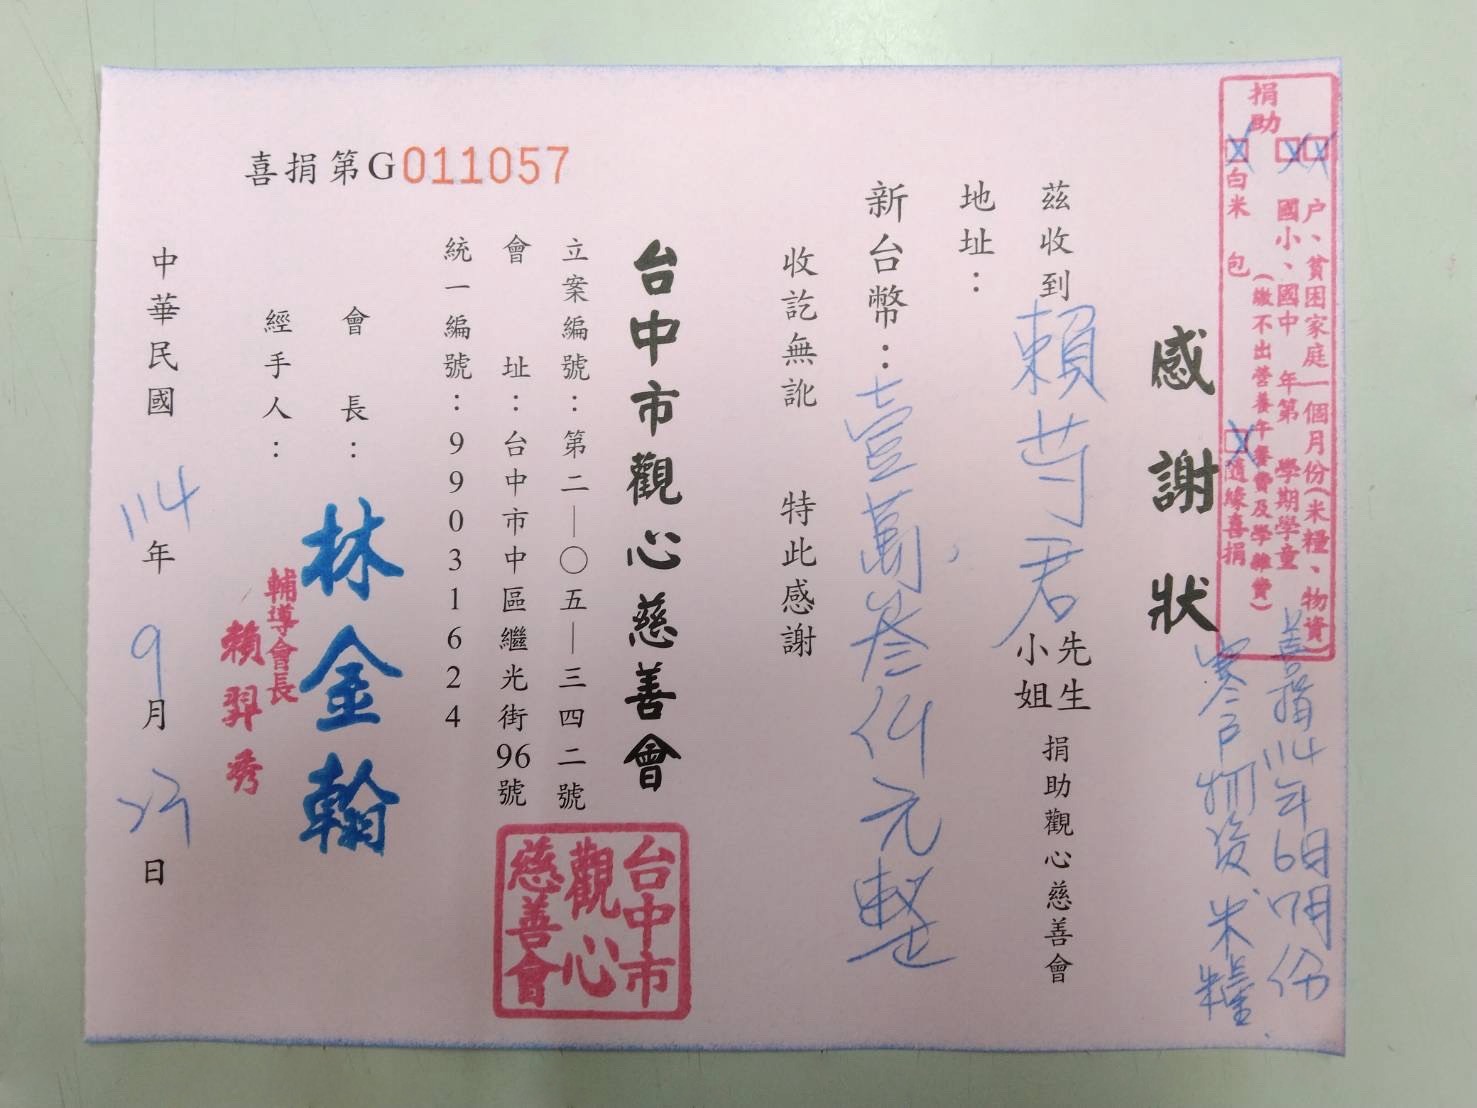 捐助
☒戶、貧困家庭一個月份(米糧、物資)
☒國小、國中 年第 學期學童
(繳不出營養午餐費及學雜費)
☒白米 包 ☒隨緣喜捐
喜捐114年6月7月份
寒戶物資米糧
感謝狀
茲收到 賴苡君 先生 小姐 捐助觀心慈善會
地址：
新台幣：壹萬叁仟元整
收訖無訛 特此感謝
台中市觀心慈善會
立案編號：第二—〇五—三四二號
會址：台中市中區繼光街96號
統一編號：99031624
台中市
觀心
慈善會
會長：林金翰
經手人：
輔導會長
賴羿秀
喜捐第G011057
中華民國 114年 9月 日